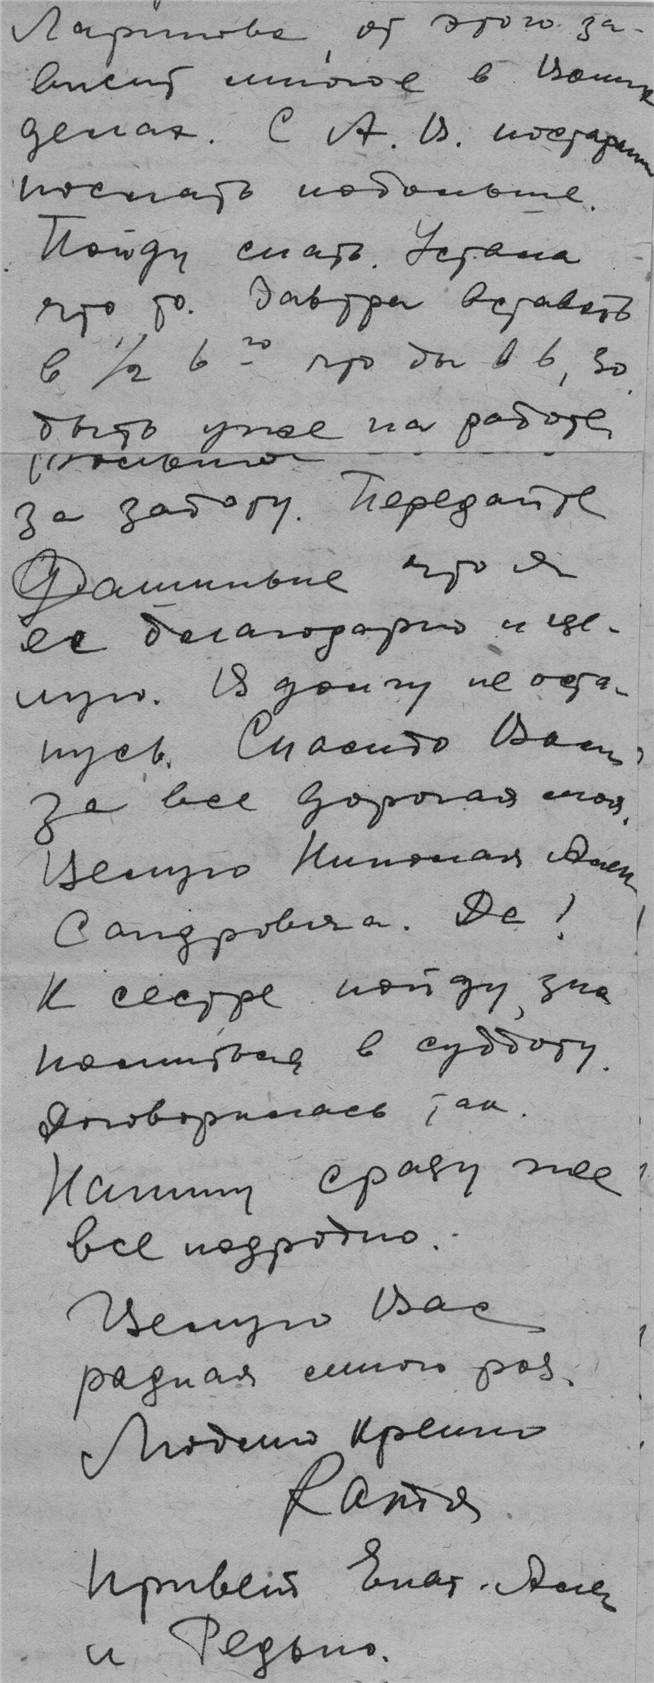 Ларинова, от этого за-
висит многое в Ваших
делах. С А. В. постараюсь
послать побольше.
Пойду спать. Устала
что то. Завтра вставать
в 1/2 6 го что бы в 6, 30
быть уже на работе,
за заботу. Передайте
что я
ее благодарю и це-
лую. В долгу не оста-
нусь. Спасибо Вам
за все дорогая моя.
Целую Николая Алек
сандровича. Да!
К сестре пойду,
в субботу.
Договорилась так.
Напишу сразу же
все подробно.
Целую Вас
родная много раз.
Люблю крепко
Катя
Привет Екат. Алек
и Редько.